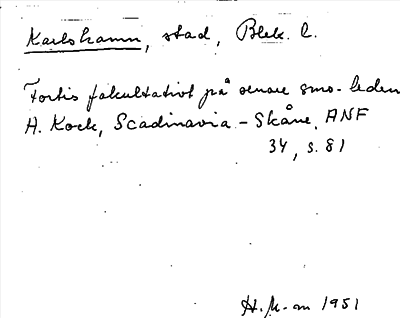 Karlshamn, stad, Blek. l.
Fortis fakultativt på senare sms-leden
H. Kock, Scadinavia - Skåne, ANF
34, s. 81
H. M-m 1951